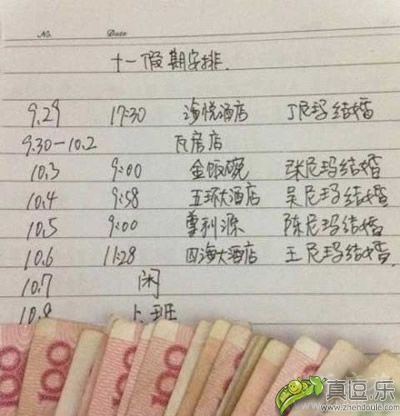 No. Date
十一假期安排.
9.29 17:30 海悦酒店 丁尼玛结婚
9.30-10.2 瓦房店
10.3 9:00 金饭碗 张尼玛结婚
10.4 9:58 五环大酒店 吴尼玛结婚
10.5 9:00 尊利源 陈尼玛结婚
10.6 11:28 四海大酒店 王尼玛结婚
10.7 闲
10.8 上班
100 100 100
真逗.乐
www.zhendoule.com